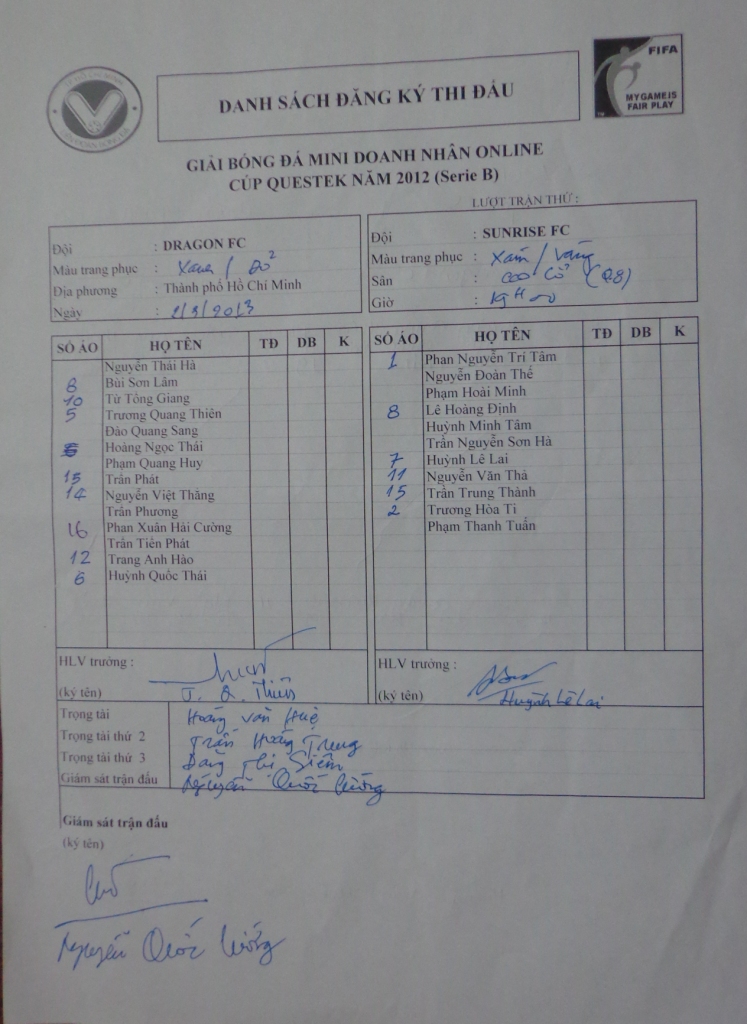 DANH SÁCH ĐĂNG KÝ THI ĐẤU
FIFA
MY GAME IS
FAIR PLAY
GIẢI BÓNG ĐÁ MINI DOANH NHÂN ONLINE
CÚP QUESTEK NĂM 2012 (Serie B)
LƯỢT TRẬN THỨ :
Đội : DRAGON FC
Màu trang phục : Xanh / Đỏ
Địa phương : Thành phố Hồ Chí Minh
Ngày : 2/3/2013
Đội : SUNRISE FC
Màu trang phục : Xám / Vàng
Sân : (Q8)
Giờ :
SỐ ÁO HỌ TÊN TĐ DB K
Nguyễn Thái Hà
8 Bùi Sơn Lâm
10 Từ Tông Giang
5 Trương Quang Thiên
Đào Quang Sang
Hoàng Ngọc Thái
Phạm Quang Huy
13 Trần Phát
14 Nguyễn Việt Thăng
Trần Phương
16 Phan Xuân Hải Cường
Trần Tiến Phát
12 Trang Anh Hào
6 Huỳnh Quốc Thái
SỐ ÁO HỌ TÊN TĐ DB K
1 Phan Nguyễn Trí Tâm
Nguyễn Đoàn Thế
Phạm Hoài Minh
8 Lê Hoàng Định
Huỳnh Minh Tâm
Trần Nguyễn Sơn Hà
7 Huỳnh Lê Lai
11 Nguyễn Văn Thả
15 Trần Trung Thành
2 Trương Hòa Ti
Phạm Thanh Tuấn
HLV trưởng :
(ký tên) T. Q. Thiên
HLV trưởng :
(ký tên) Huỳnh Lê Lai
Trọng tài Hoàng Văn Huệ
Trọng tài thứ 2 Trần Hoàng Trung
Trọng tài thứ 3 Đặng Thi
Giám sát trận đấu Nguyễn Quốc Cường
Giám sát trận đấu
(ký tên)
Nguyễn Quốc Cường